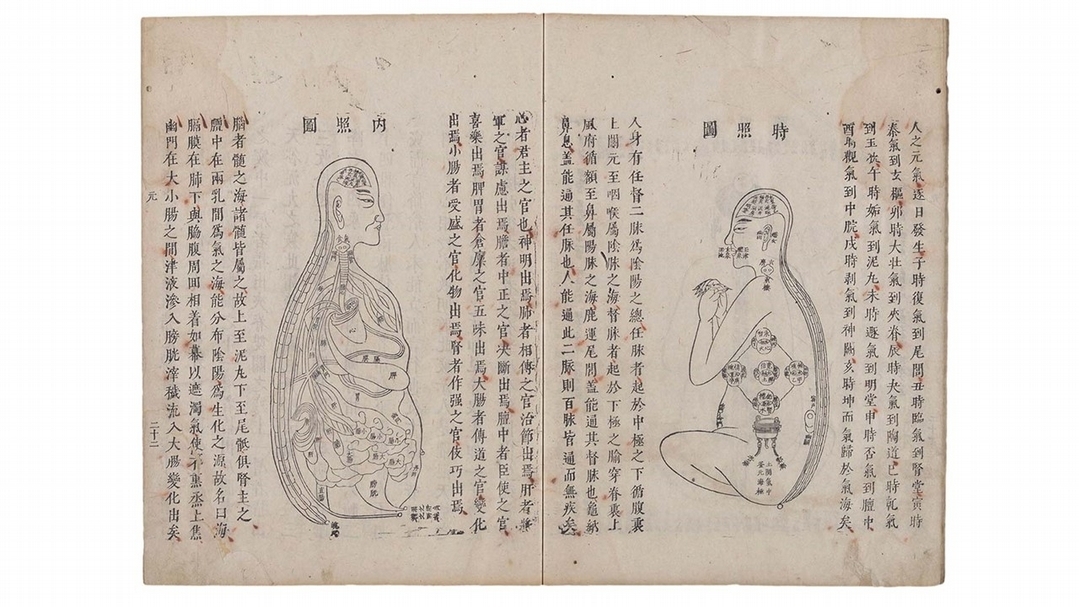 人之元氣逐日發生子時復氣到尾閭丑時臨氣到腎堂寅時
泰氣到玄樞卯時大壯氣到夾脊辰時夬氣到陶道巳時乾氣
到玉枕午時姤氣到泥丸未時遯氣到明堂申時否氣到膻中
酉時觀氣到中脘戌時剥氣到神闕亥時坤而氣歸於氣海矣
時照圖
人身有任督二脉爲陰陽之總任脉者起於中極之下循腹裏
上關元至咽喉屬陰脉之海督脉者起於下極之腧穿脊裏上
風府循額至鼻屬陽脉之海鹿運尾閭蓋能通其督脉也龜納
鼻息蓋能通其任脉也人能通此二脉則百脉皆通而無疾矣
心者君主之官也神明出焉肺者相傅之官治節出焉肝者將
軍之官謀慮出焉膽者中正之官决斷出焉膻中者臣使之官
喜樂出焉脾胃者倉廩之官五味出焉大腸者傳道之官變化
出焉小腸者受盛之官化物出焉腎者作强之官伎巧出焉
内照圖
心
脾
大腸
膀胱
腦者髓之海諸髓皆屬之故上至泥丸下至尾骶俱腎主之
膻中在兩乳間爲氣之海能分布陰陽爲生化之源故名曰海
膈膜在肺下與脇腹周囬相着如幕以遮濁氣使不熏蒸上焦
幽門在大小腸之間津液滲入膀胱滓穢流入大腸變化出矣
元
二十二